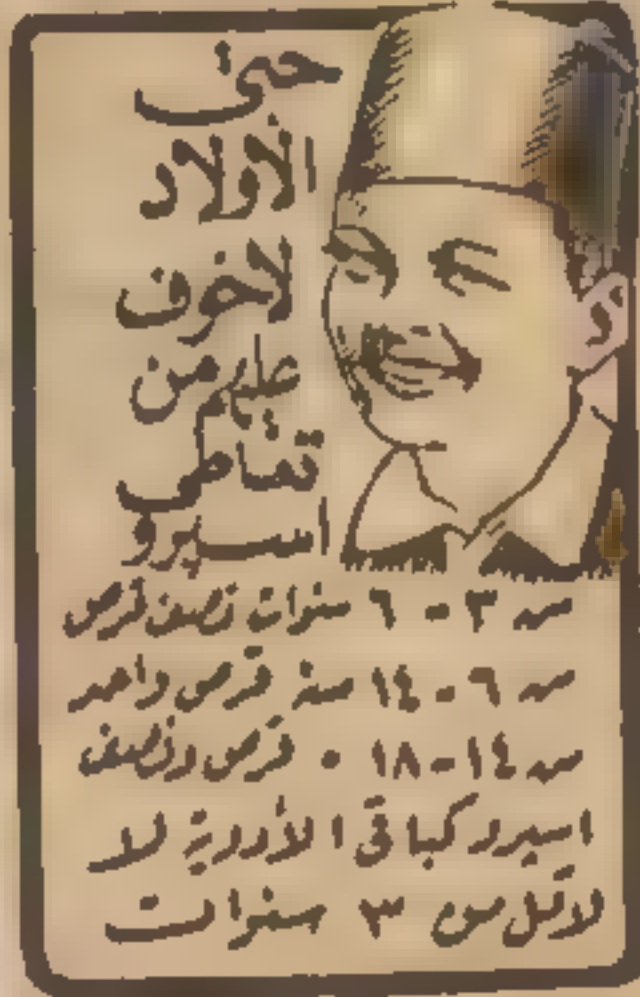 حتى
الأولاد
لاخوف
عليهم من
تعاطي
اسبرو
من ٣ - ٦ سنوات نصف قرص
من ٦ - ١٤ سنة قرص واحد
من ١٤ - ١٨ • قرص ونصف
اسبرو كباقي الأدوية لا
لأقل من ٣ سنوات